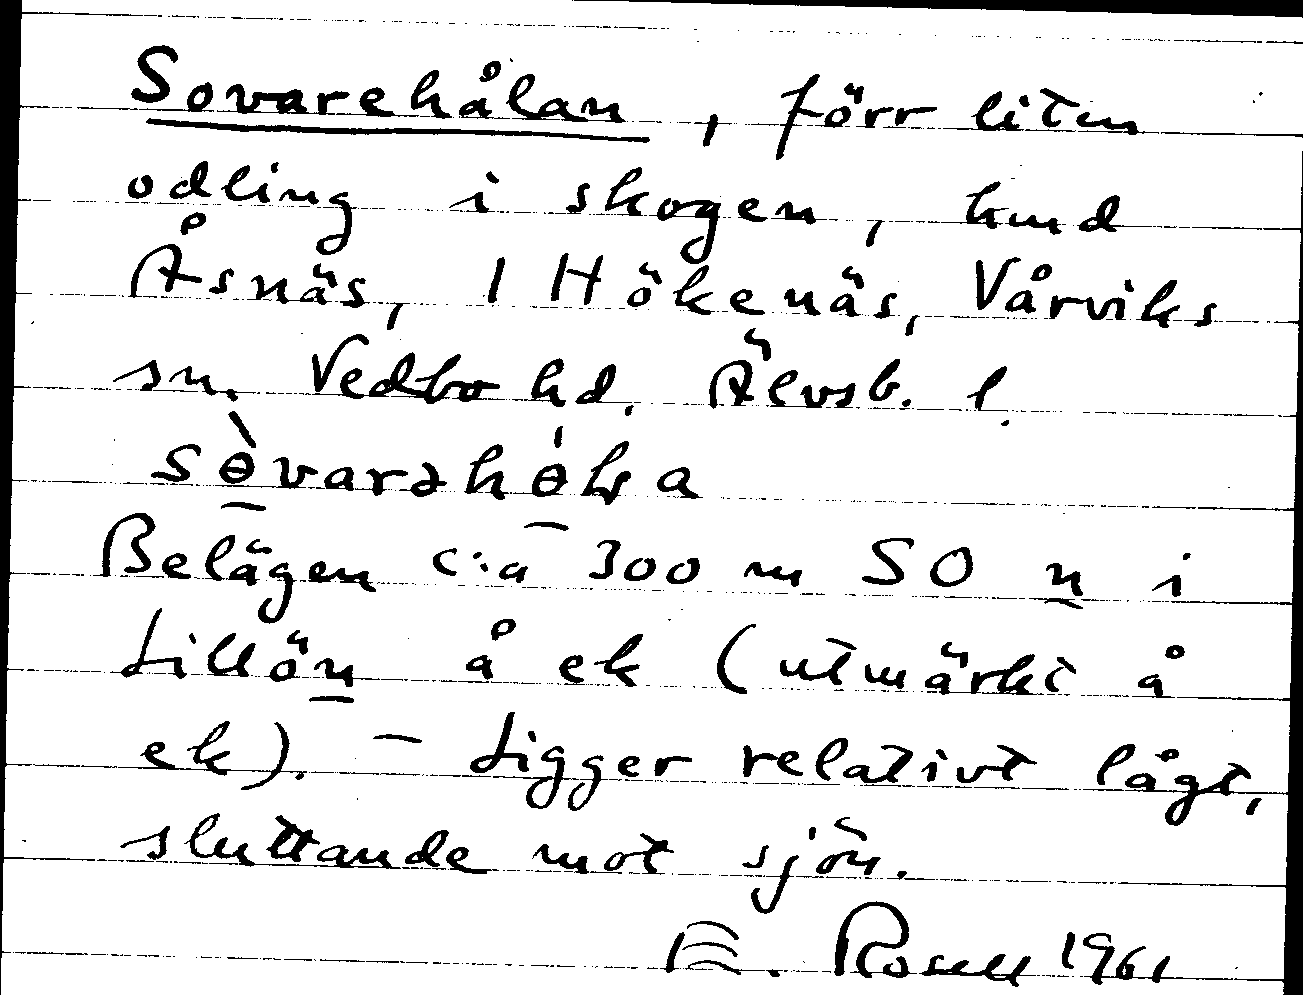 Sovarehålan, förr liten
odling i skogen, hmd
Åsnäs, 1 Hökenäs, Vårviks
sn. Vedbo hd. Älvsb. l.
sɵ̀varəhɵ́la
Belägen c:a 300 m SO n i
Lillön å ek (utmärkt å
ek). – Ligger relativt lågt,
sluttande mot sjön.
E. Rosell 1961